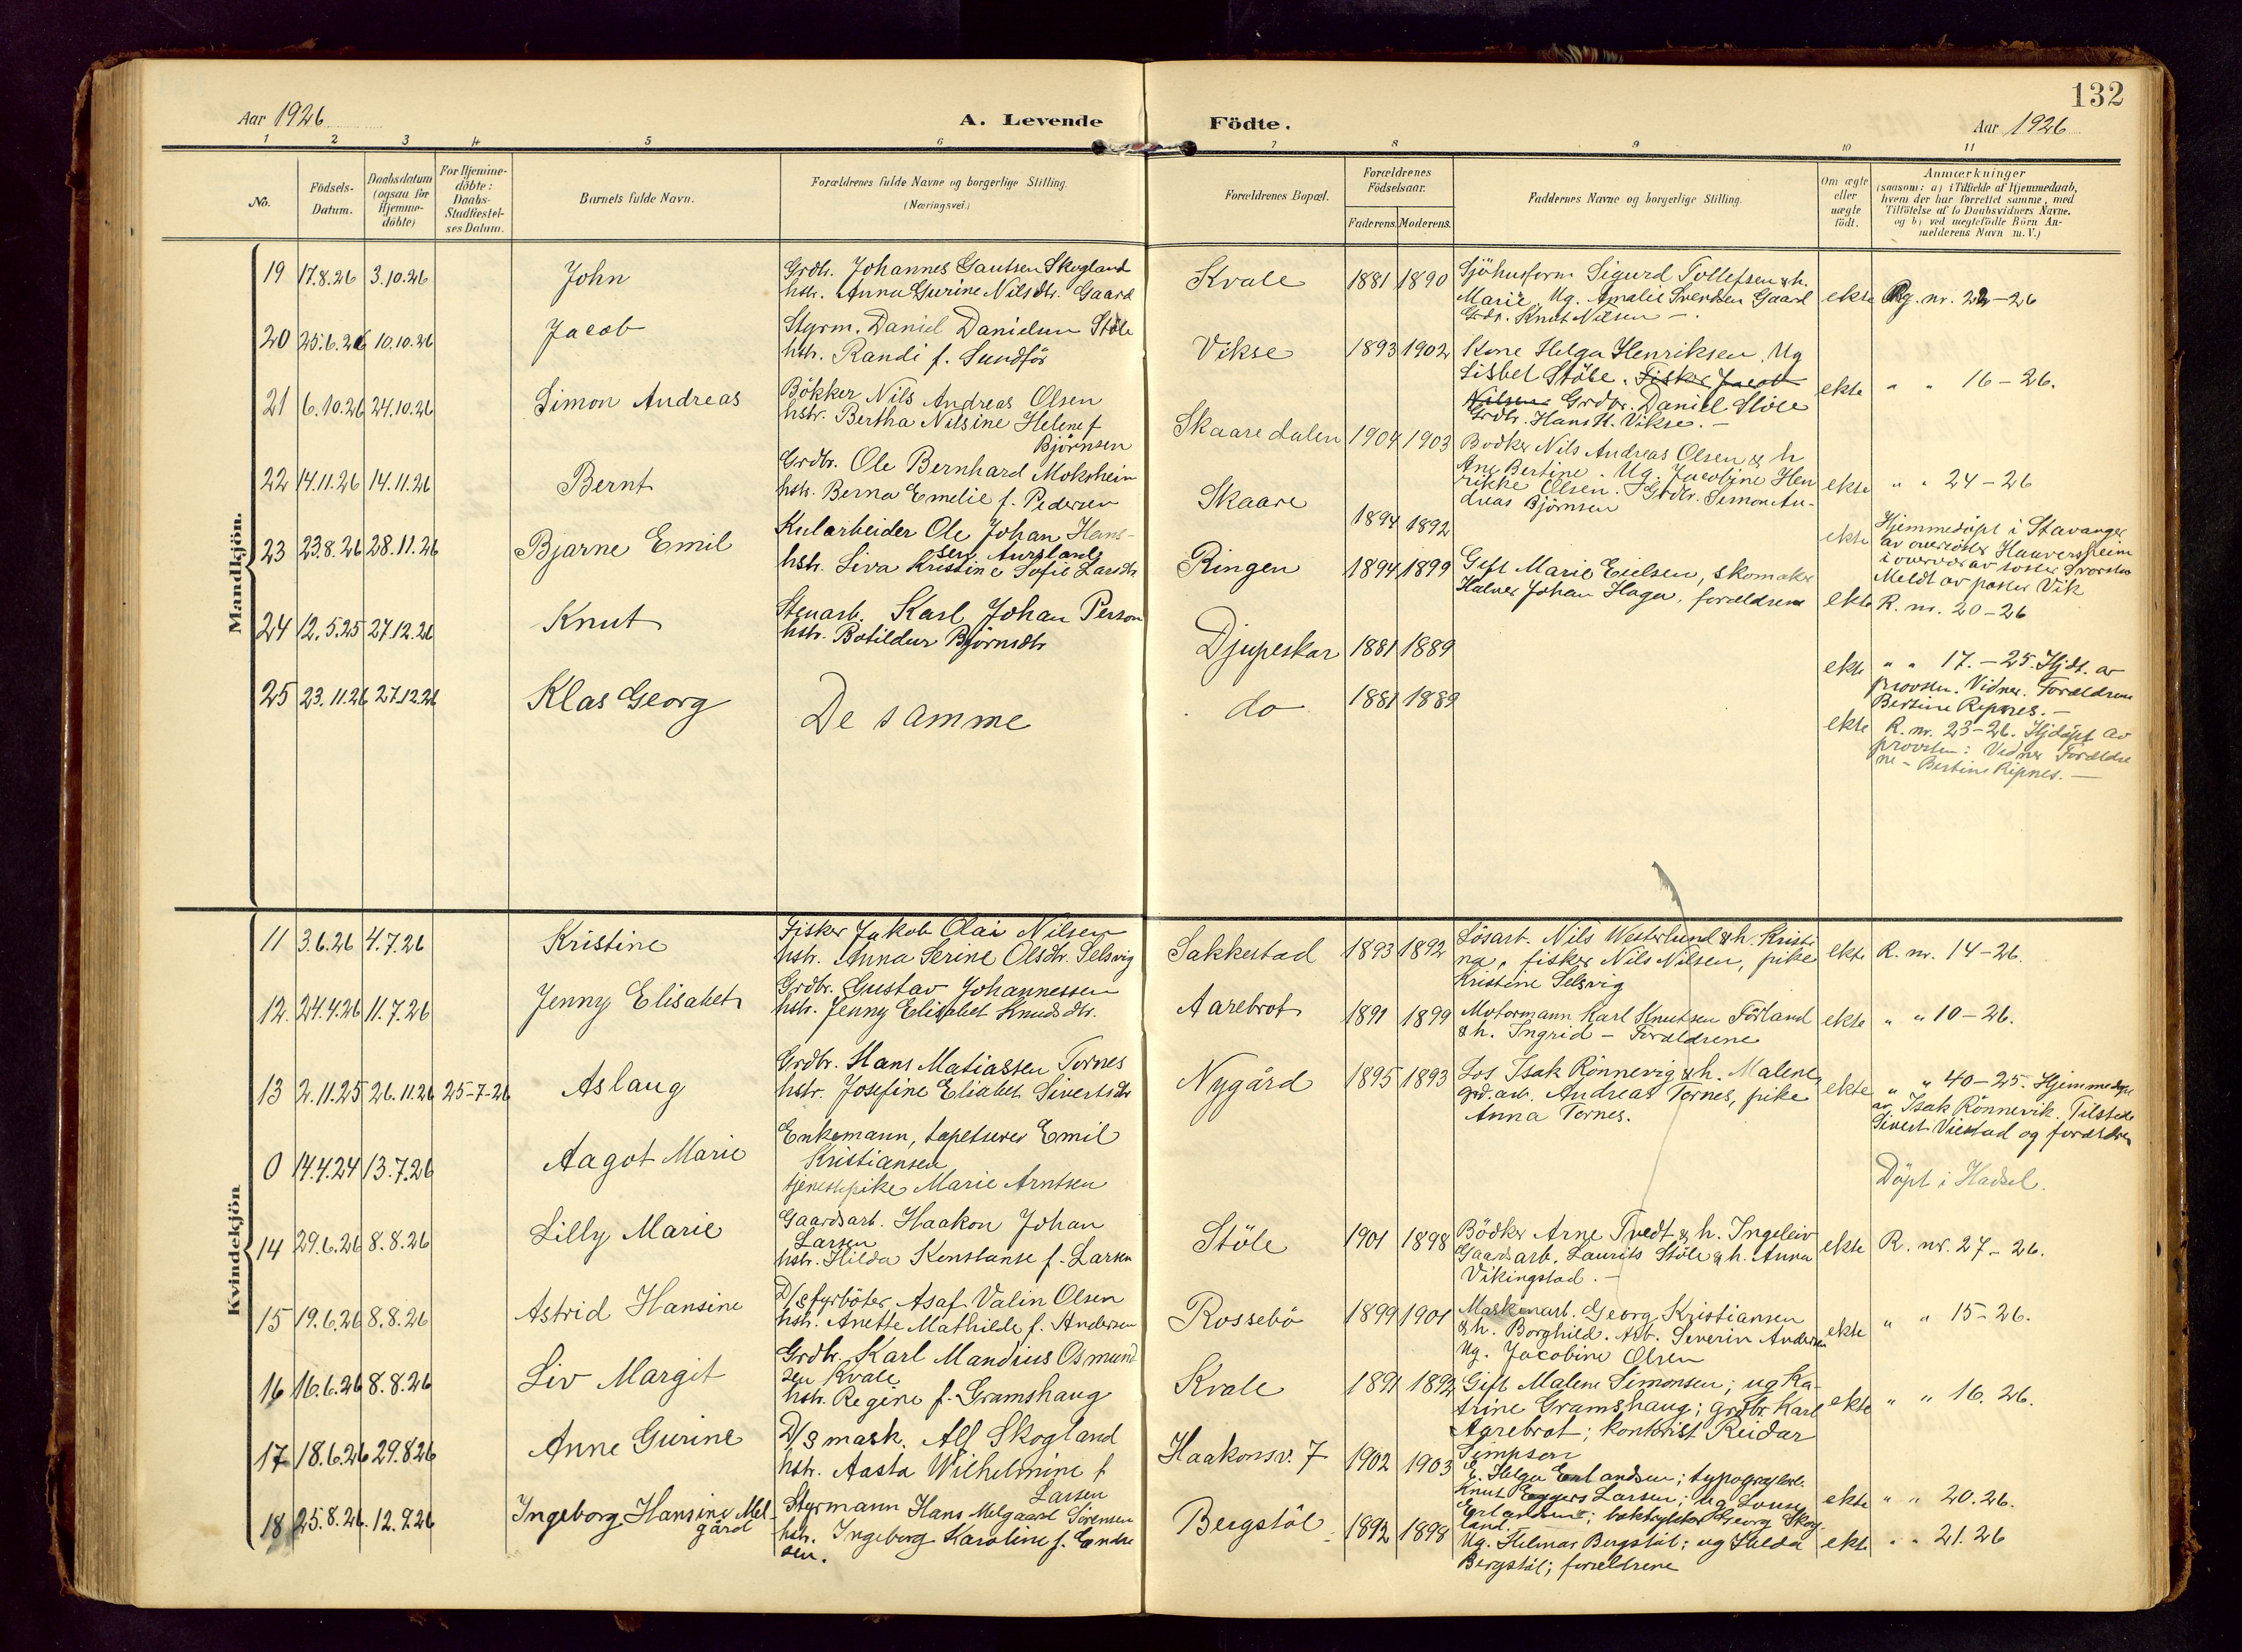 132
Aar 1926
A. Levende Födte.
Aar 1926
1 2 3 4 5 6 7 8 9 10 11
No.
Födsels-Datum.
Daabsdatum (ogsaa for Hjemme-döbte)
For Hjemme-döbte: Daabs-Stadfæstel-ses Datum.
Barnets fulde Navn.
Forældrenes fulde Navne og borgerlige Stilling.
(Næringsvei.)
Forældrenes Bopæl.
Forældrenes Födselsaar.
Faderens. Moderens.
Faddernes Navne og borgerlige Stilling.
Om ægte eller uægte födt.
Anmærkninger
(saasom: a) i Tilfælde af Hjemmedaab,
hvem der har forrettet samme, med
Tilföielse af to Daabsvidners Navne,
og b) ved uægtefödte Börn An-
melderens Navn m. V.)
Mandkjön.
19 17.8.26 3.10.26 John
Grdbr. Johannes Gautsen Skogland
hstr. Anna Gurine Nilsdtr. Gaard
Kvale 1881 1890
Sjöhusform Sigurd Tollefsen & h.
Marie. Ug. Amalie Svendsen Gaard
Grdr. Knut Nilsen —.
ekte Rg. nr. 22–26
20 25.6.26 10.10.26 Jacob
Styrm. Daniel Danielsen Stöle
hstr. Randi f. Sundför
Vikse 1893 1902
Kone Helga Henriksen. Ug
Lisbet Stöle. Fisker Jacob
Nilsen. Grdbr. Daniel Stöle
Grdbr. Hans H. Vikse. —
ekte " " 16–26.
21 6.10.26 24.10.26 Simon Andreas
Bökker Nils Andreas Olsen
hstr. Bertha Nilsine Helene f
Björnsen
Skaaredalen 1904 1903
Bödker Nils Andreas Olsen & h
Ane Bertine. Ug. Jacobine Hen
rikke Olsen. Grdbr. Simon An-
dreas Björnsen
ekte " " 24–26
22 14.11.26 14.11.26 Bernt
Grdbr. Ole Bernhard Moksheim
hstr. Berna Emelie f. Pedersen
Skaare 1894 1892
ekte Hjemmedöpt i Stavanger
av overlöits Haaversheim
i overvær av söster
Meldt av pastor Vik
23 23.8.26 28.11.26 Bjarne Emil
Kularbeider Ole Johan Hans-
sen Aursland
hstr. Liva Kristine Sofie Larsdtr
Ringen 1894 1899
Gift Marie Eielsen, skomaker
Halvor Johan Haga, forældrene
ekte R. nr. 20–26
24 12.5.25 27.12.26 Knut
Stenarb. Karl Johan Person
hstr. Botildur Björnsdtr
Djupeskar 1881 1889
ekte " " 17.–25. Hjdt. av
provsten. Vidner. Forældrene
Bertine Ripnes. —
25 23.11.26 27.12.26 Klas Georg
De samme
do 1881 1889
ekte R. nr. 23–26. Hjdöpt av
provsten: Vidner Forældre
ne – Bertine Ripnes. —
Kvindekjön
11 3.6.26 4.7.26 Kristine
Fisker Jakob Olai Nilsen
hstr. Anna Serine Olsdtr. Selsvig
Sakkestad 1893 1892
Lösarb. Nils Westerlund & h. Kristi
na, fisker Nils Nilsen, pike
Kristine Selsvig
ekte R. nr. 14–26.
12. 24.4.26 11.7.26 Jenny Elisabet
Grdbr. Gustav Johannessen
hstr. Jenny Elisabet Knudsdtr.
Aarebrot 1891 1899
Motormann Karl Knutsen Förland
& h. Ingrid – Forældrene
ekte " " 10–26.
13 2.11.25 26.11.26 25-7-26 Aslaug
Grdbr. Hans Matiassen Tornes
hstr. Josefine Eliabet Sivertsdtr
Nygård 1895 1893
Los Isak Rönnevig & h. Malene,
grd.arb. Andreas Tornes, pike
Anna Tornes.
ekte " " 40–25. Hjemmedöpt
av Isak Rönnevik. Tilstede
Sivert Vikstad og forældrene
0 14.4.24 13.7.26 Aagot Marie
Enkemann, tapetserer Emil
Kristiansen
tjenestepike Marie Arntsen
Döpt i Hadsel.
14 29.6.26 8.8.26 Lilly Marie
Gaardsarb. Haakon Johan
Larsen
hstr. Hilda Konstanse f. Larsen
Stöle 1901 1898
Bödker Arne Tvedt & h. Ingeleiv
Gaardsarb. Laurits Stöle & h. Anna
Vikingstad. —
ekte R. nr. 27–26.
15 19.6.26 8.8.26 Astrid Hansine
D/s fyrböter Asaf Valin Olsen
hstr. Anette Mathilde f. Andersen
Rossebö 1899 1901
Maskinarb. Georg Kristiansen
& h. Borghild. Arb. Severin Andersen
Ug. Jacobine Olsen
ekte " " 15–26.
16 16.6.26 8.8.26 Liv Margit
Grdbr. Karl Mandius Osmund
sen Kvale
hstr. Regine f. Gramshaug
Kvale 1891 1892
Gift Malene Simonsen; ug Ka-
trine Gramshaug; grdbr. Karl
Aarebrot; kontorist Reidar
Simpson
ekte " " 16. 26.
17 18.6.26 29.8.26 Anne Gurine
D/s mask. Alf Skogland
hstr. Aasta Wilhelmine f
Larsen
Haakonsv. 7 1902 1903
G. Helga Erlandsen; typograf
Knut Eggers Larsen; Ug Louise
Erlandsen; boktrykker Georg Skog-
land.
ekte " " 20.26.
18 25.8.26. 12.9.26 Ingeborg Hansine Mel-
gård
Styrmann Hans Melgaard Sörensen
hstr. Ingeborg Karoline f. Endre
sen.
Bergstöl 1892 1898
Ug. Helmar Bergstöl; ug Hilda
Bergstöl; forældrene
ekte " " 21.26